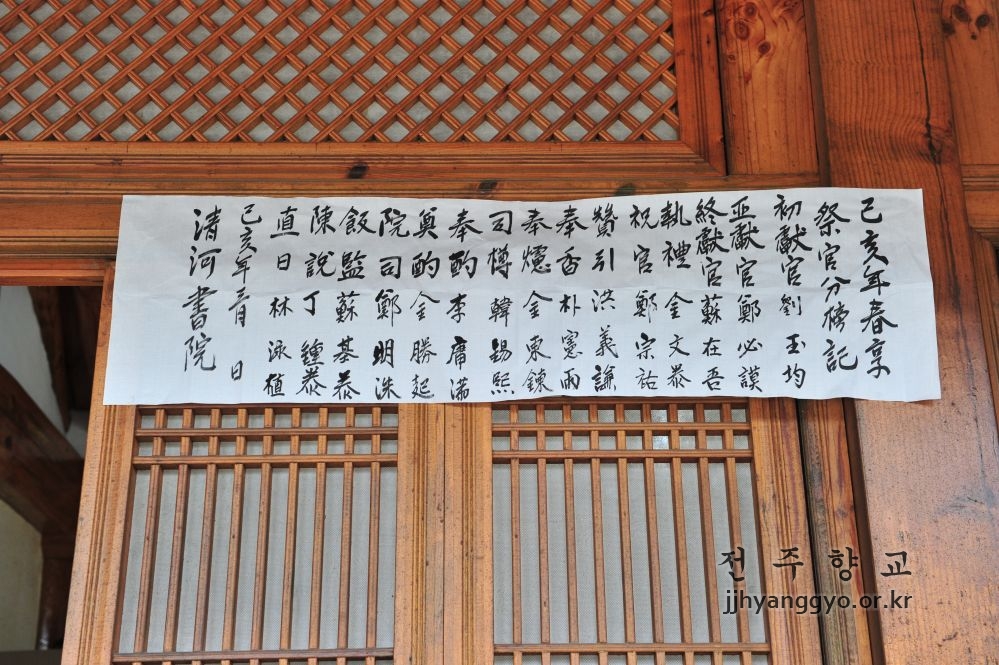 己亥年春享
祭官分榜記
初獻官 劉玉均
亞獻官 鄭必謨
終獻官 蘇在吾
執禮 金文泰
祝官 鄭宗祐
贊引 洪義謙
奉香 朴憲雨
奉爐 金東鍊
司樽 韓錫熙
奉酌 李
奠酌 金勝起
院司 鄭明洙
飯監 蘇基泰
陳設 丁鍾恭
直日 林泳植
己亥年 月 日
淸河書院
전주향교
jjhyanggyo.or.kr